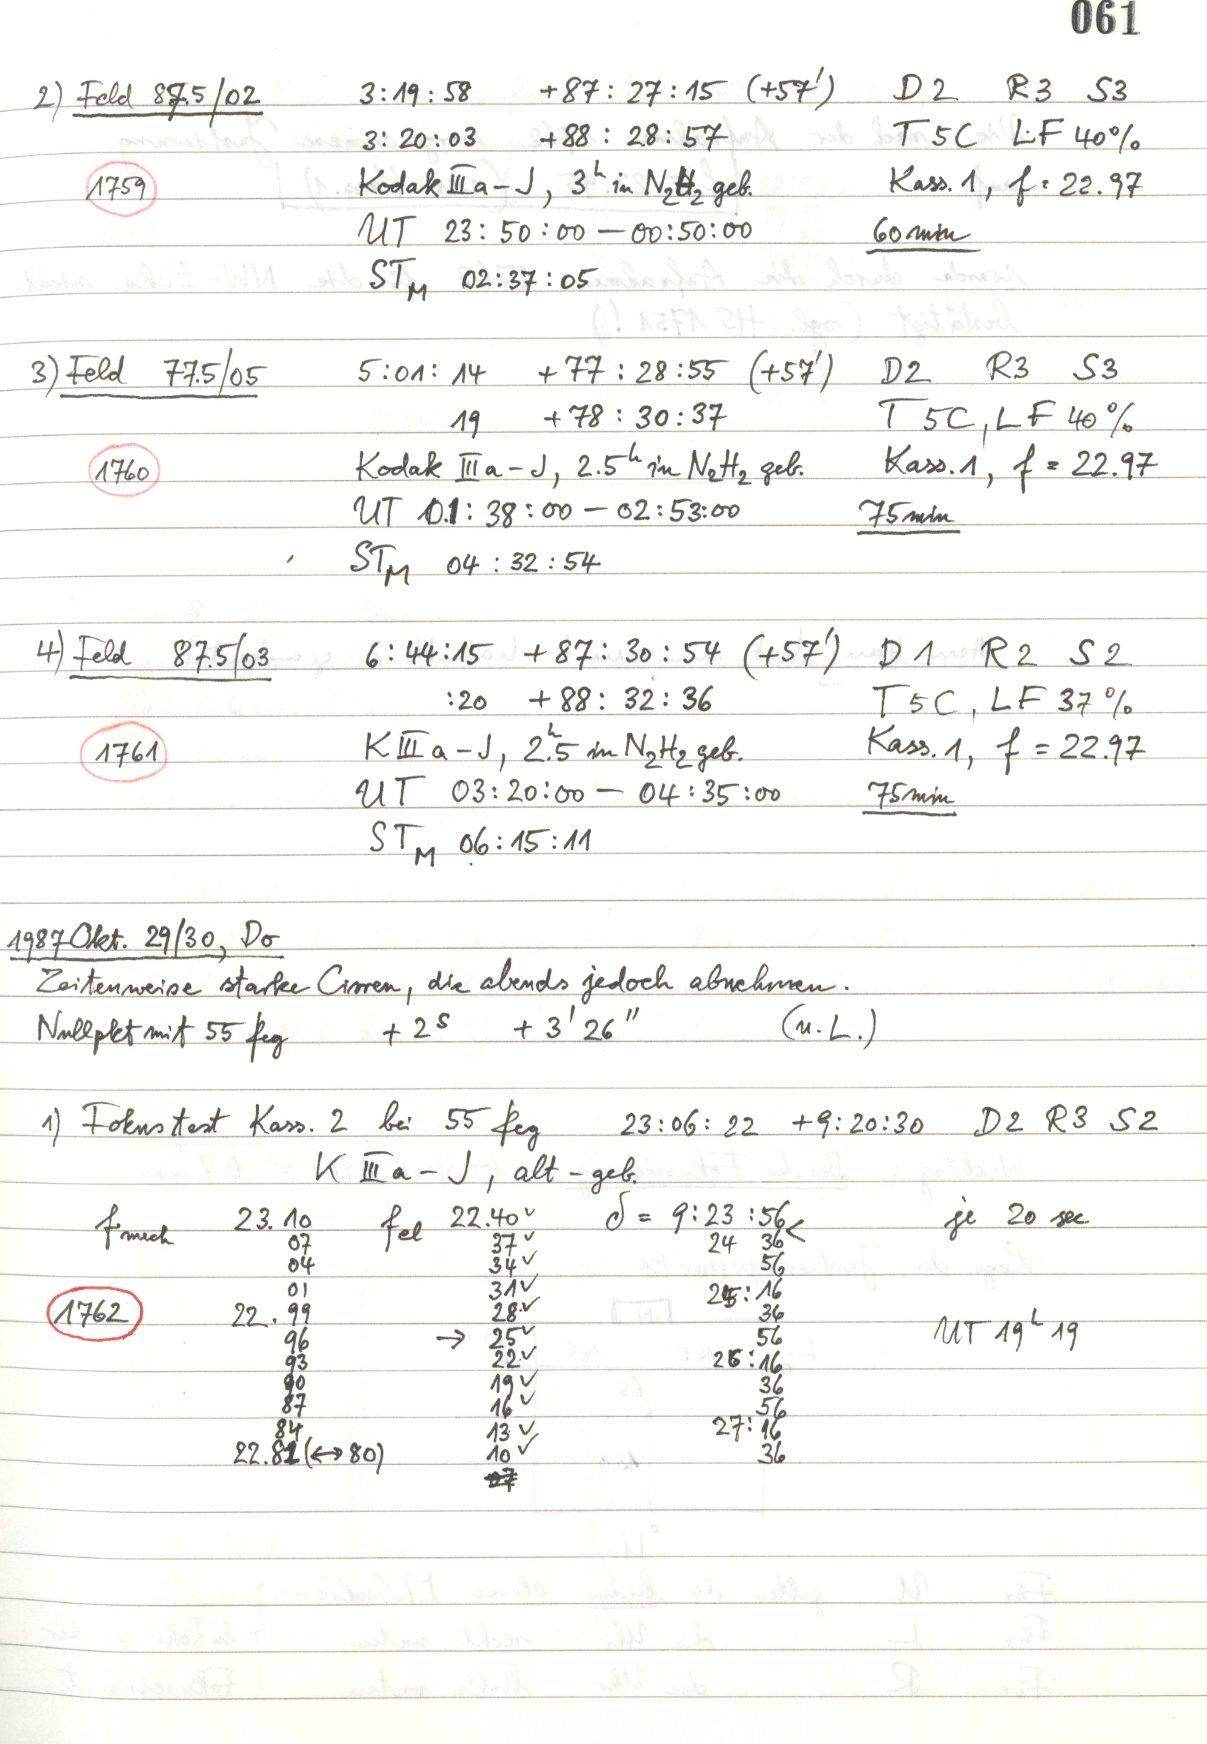 061
2) Feld 87.5/02 3:19:58 +87:27:15 (+57') D2 R3 S3
3:20:03 +88:28:57 T 5C LF 40%
1759 Kodak IIIa-J, 3h in N2H2 geb. Kass. 1, f = 22.97
UT 23:50:00 — 00:50:00 60 min
STM 02:37:05
3) Feld 77.5/05 5:01:14 +77:28:55 (+57') D2 R3 S3
19 +78:30:37 T 5C, LF 40%
1760 Kodak IIIa-J, 2.5h in N2H2 geb. Kass. 1, f = 22.97
UT 01:38:00 — 02:53:00 75 min
STM 04:32:54
4) Feld 87.5/03 6:44:15 +87:30:54 (+57') D1 R2 S2
:20 +88:32:36 T 5C, LF 37%
1761 K IIIa-J, 2.5h in N2H2 geb. Kass. 1, f = 22.97
UT 03:20:00 — 04:35:00 75 min
STM 06:15:11
1987 Okt. 29/30, Do
Zeitenweise starke Cirren, die abends jedoch abnehmen.
Nullpkt mit 55 Peg +2s +3'26" (n.L.)
1) Fokustest Kass. 2 bei 55 Peg 23:06:22 +9:20:30 D2 R3 S2
K IIIa-J, alt-geb.
fmech 23.10 fel 22.40✓ δ = 9:23:56< je 20 sec
07 37✓ 24 36
04 34✓ 56
01 31✓ 25:16
1762 22.99 28✓ 36
96 → 25✓ 56 UT 19h19
93 22✓ 26:16
90 19✓ 36
87 16✓ 56
84 13✓ 27:16
22.81 (↔80) 10✓ 36
07